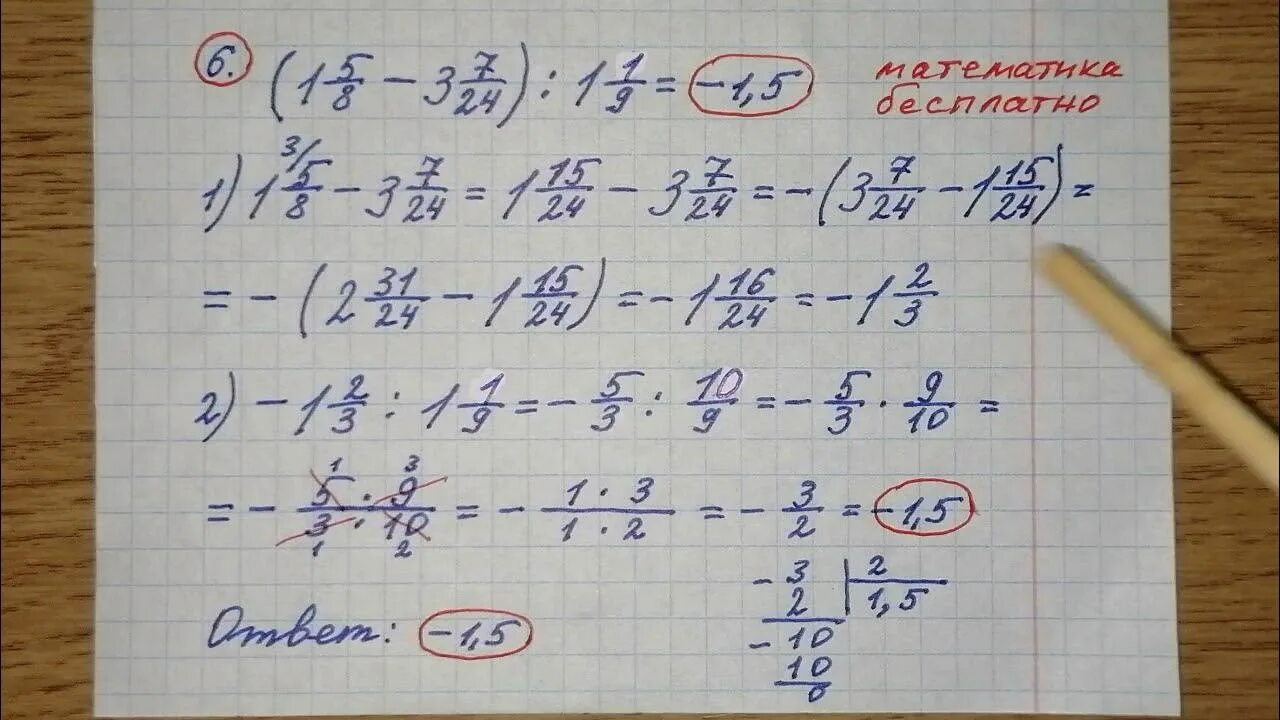 6. (1 5/8 − 3 7/24) : 1 1/9 = −1,5
математика
бесплатно
1) 1 5/8 ³⁄ − 3 7/24 = 1 15/24 − 3 7/24 = −(3 7/24 − 1 15/24) =
= −(2 31/24 − 1 15/24) = −1 16/24 = −1 2/3
2) −1 2/3 : 1 1/9 = −5/3 : 10/9 = −5/3 · 9/10 =
= − 5 · 9 / 3 · 10 = − 1 · 3 / 1 · 2 = − 3/2 = −1,5
1 3
1 2
− 3 | 2
2 | 1,5
− 10
10
0
Ответ: −1,5